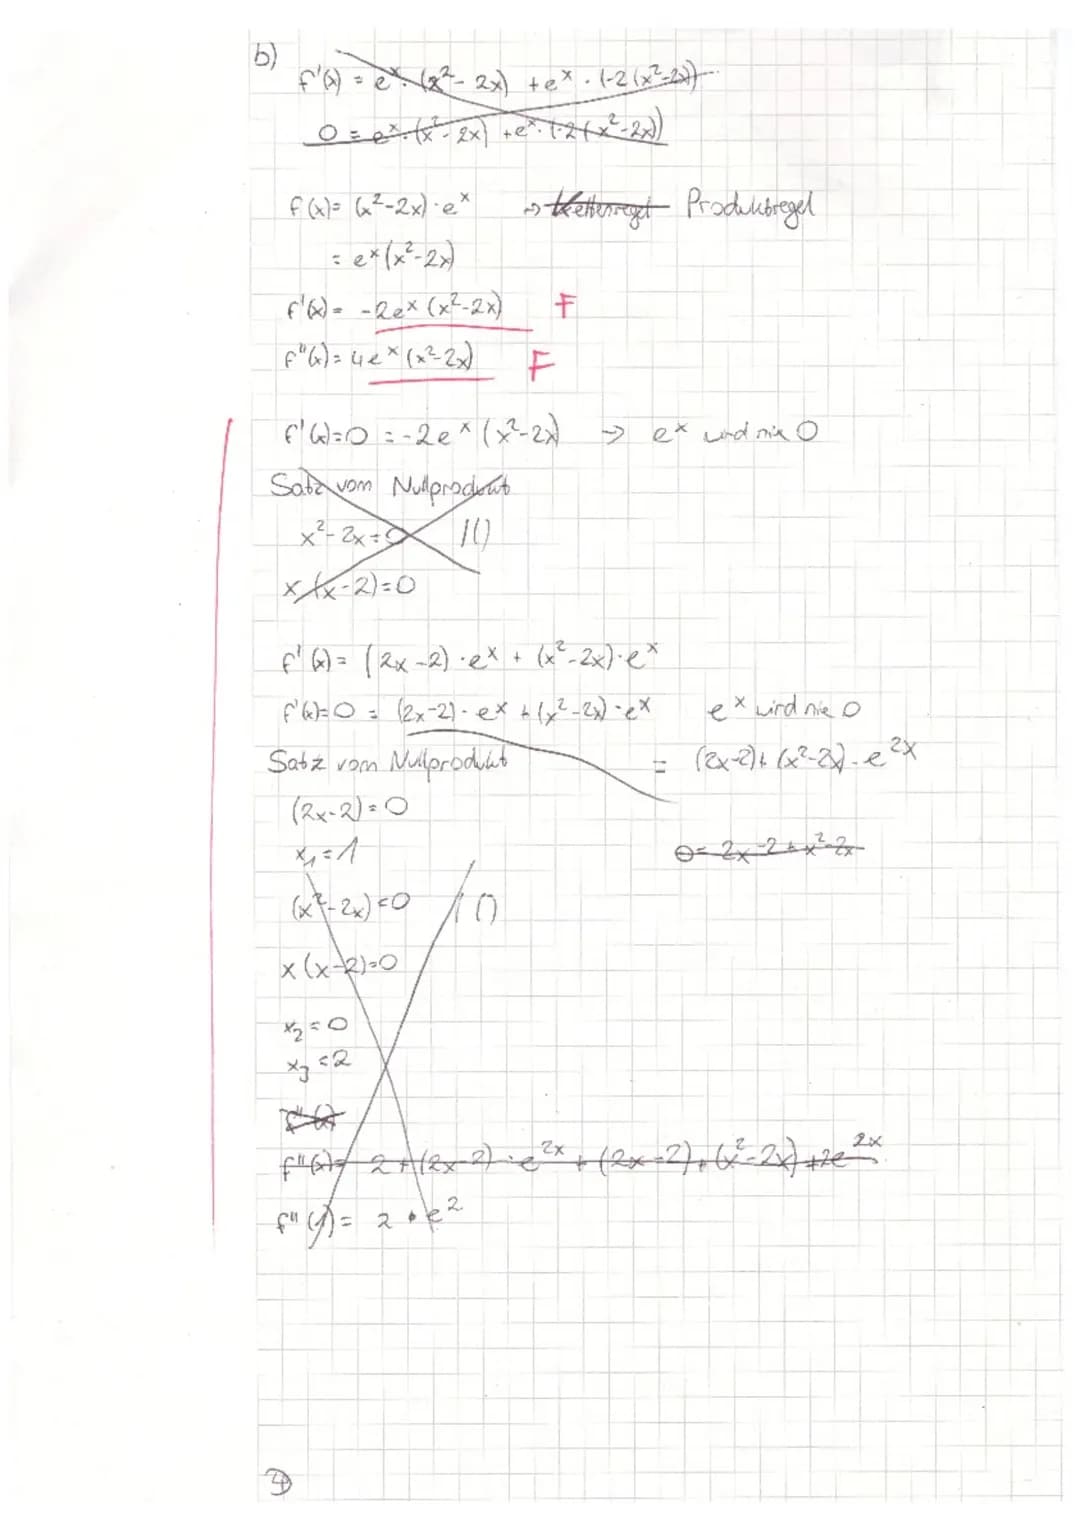 b)
f'(x) = e^x · (x² - 2x) + e^x · (-2(x²-2x))
0 = e^x · (x² - 2x) + e^x · (-2(x²-2x))
f(x) = (x²-2x) · e^x → Kettenregel Produktregel
= e^x (x²-2x)
f'(x) = -2e^x (x²-2x) F
f''(x) = 4e^x (x²-2x) F
f'(x)=0 = -2e^x (x²-2x) → e^x wird nie 0
Satz vom Nullprodukt
x² - 2x = 0 |()
x (x-2) = 0
f'(x) = (2x-2) · e^x + (x²-2x) · e^x
f'(x)=0 = (2x-2) · e^x + (x²-2x) · e^x e^x wird nie 0
Satz vom Nullprodukt = (2x-2)+(x²-2x) · e^2x
(2x-2) = 0
x₁ = 1 0 = 2x-2+x²-2x
(x²-2x) = 0 |()
x (x-2) = 0
x₂ = 0
x₃ = 2
f''(x)
f''(x) = 2 + (2x-2) · e^2x + (2x-2) + (x²-2x) + 2e^2x
f''(1) = 2 · e²
4